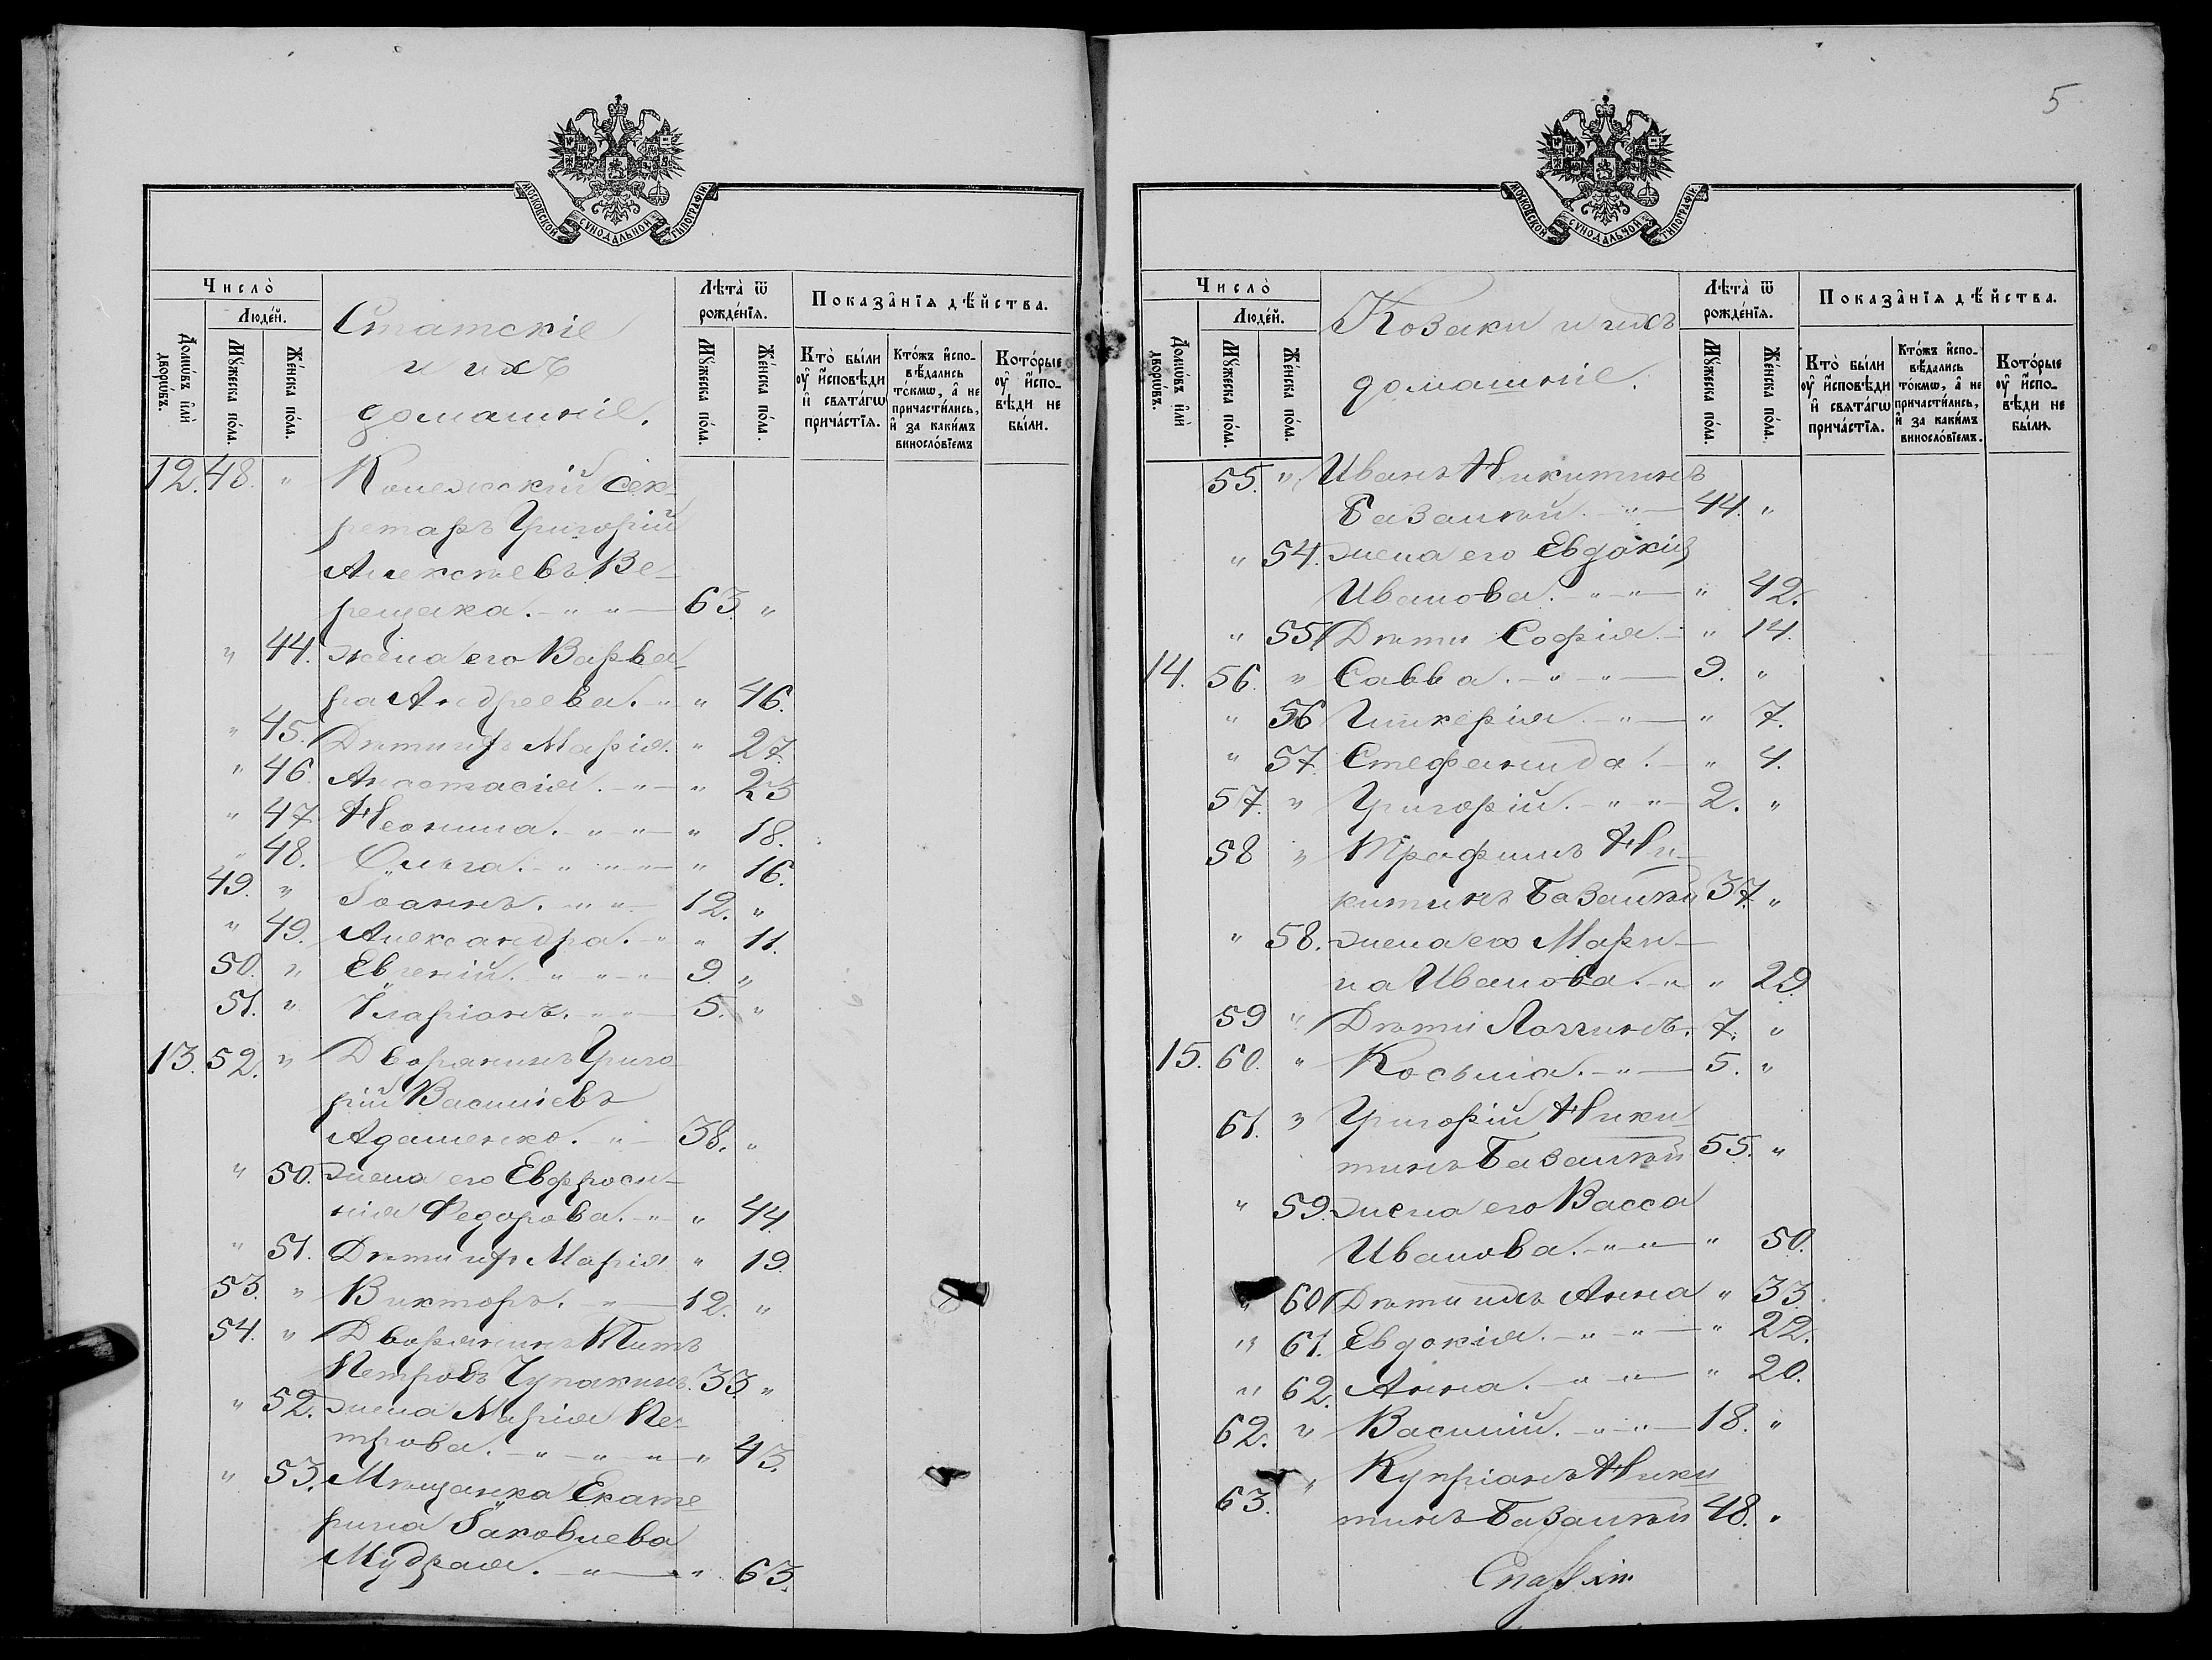 МОСКОВСКОЙ СѴНОДАЛЬНОЙ ТИПОГРАФІИ
Число̀
Люде́й.
Домѡ́въ и҆лѝ дворѡ́въ.
Мꙋ́жеска по́ла.
Же́нска по́ла.
Статскіе
и ихъ
домашніе.
Лѣта̀ ѿ
рожде́нїѧ.
Мꙋ́жеска по́ла.
Же́нска по́ла.
Показа̂нїѧ дѣ́йства.
Кто̀ бы́ли
ᲂу҆ и҆сповѣди
и҆ свѧта́гѡ
прича́стїѧ.
Кто́жъ и҆спо-
вѣдались
то́кмѡ, а҆ не
причасти́лись,
и҆ за каки́мъ
винослѡ́вїемъ
Кото́рые
ᲂу҆ и҆спо-
вѣди не
бы́ли.
12. 48. " Колежскій Сек-
ретарь Григорій
Алексѣевъ Ве-
рещака. - " " — 63. "
" 44. жена его Варва-
ра Андреева. - " " 46.
" 45. Дѣти ихъ Марія. " 27.
" 46. Анастасія. - " — " 23
" 47 Неонила. - " - " — " 18.
" 48. Ольга. - " - " — " 16.
49. " Іоаннъ. - " " — 12. "
" 49. Александра. - " " 11.
50. " Евгеній. " - " - " 9. "
51. " Иларіонъ. - " - " — 5. "
13. 52. " Дворянинъ Григо
рій Васильевъ
Адаменко. - " — 38. "
" 50. жена его Евфроси-
нія Федорова. - " " 44.
" 51. Дѣти ихъ Марія " 19.
53. " Викторъ. - " — 12. "
54. " Дворянинъ Титъ
Петровъ Чупакинъ. 33. "
" 52. жена Марія Пе-
трова. - " - " - " — " 43.
" 53. Мѣщанка Екате
рина Іаковлева
Мудрая. - " — " 63.
5
МОСКОВСКОЙ СѴНОДАЛЬНОЙ ТИПОГРАФІИ
Число̀
Люде́й.
Домѡ́въ и҆лѝ дворѡ́въ.
Мꙋ́жеска по́ла.
Же́нска по́ла.
Козаки и ихъ
домашніе.
Лѣта̀ ѿ
рожде́нїѧ.
Мꙋ́жеска по́ла.
Же́нска по́ла.
Показа̂нїѧ дѣ́йства.
Кто̀ бы́ли
ᲂу҆ и҆сповѣди
и҆ свѧта́гѡ
прича́стїѧ.
Кто́жъ и҆спо-
вѣдались
то́кмѡ, а҆ не
причасти́лись,
и҆ за каки́мъ
винослѡ́вїемъ.
Кото́рые
ᲂу҆ и҆спо-
вѣди не
бы́ли.
55. " Иванъ Никитинъ
Базалѣй. - " — 44. "
" 54. жена его Евдокія
Иванова. - " - " — " 42.
" 55 Дѣти Софія. - " 14.
14. 56. " Савва. - " - " — 9. "
" 56 Гликерія. - " — " 7.
" 57. Стефанида. - " 4.
57. " Григорій. - " - " 2. "
58 " Трофимъ Ни-
китинъ Базалѣй 37. "
" 58. жена его Мари-
на Иванова. - " " 29.
59 " Дѣти Логгинъ. 7. "
15. 60. " Косьма. - " — 5. "
61. " Григорій Ники
тинъ Базалѣй 55. "
" 59. жена его Васса
Иванова. - " - " — " 50.
" 60 Дѣти ихъ Анна " 33.
" 61. Евдокія. - " - " — " 22.
" 62. Анна. - " - " — " 20.
62. " Василій. - " - " — 18. "
63. " Купріанъ Ники
тинъ Базалѣй 48. "